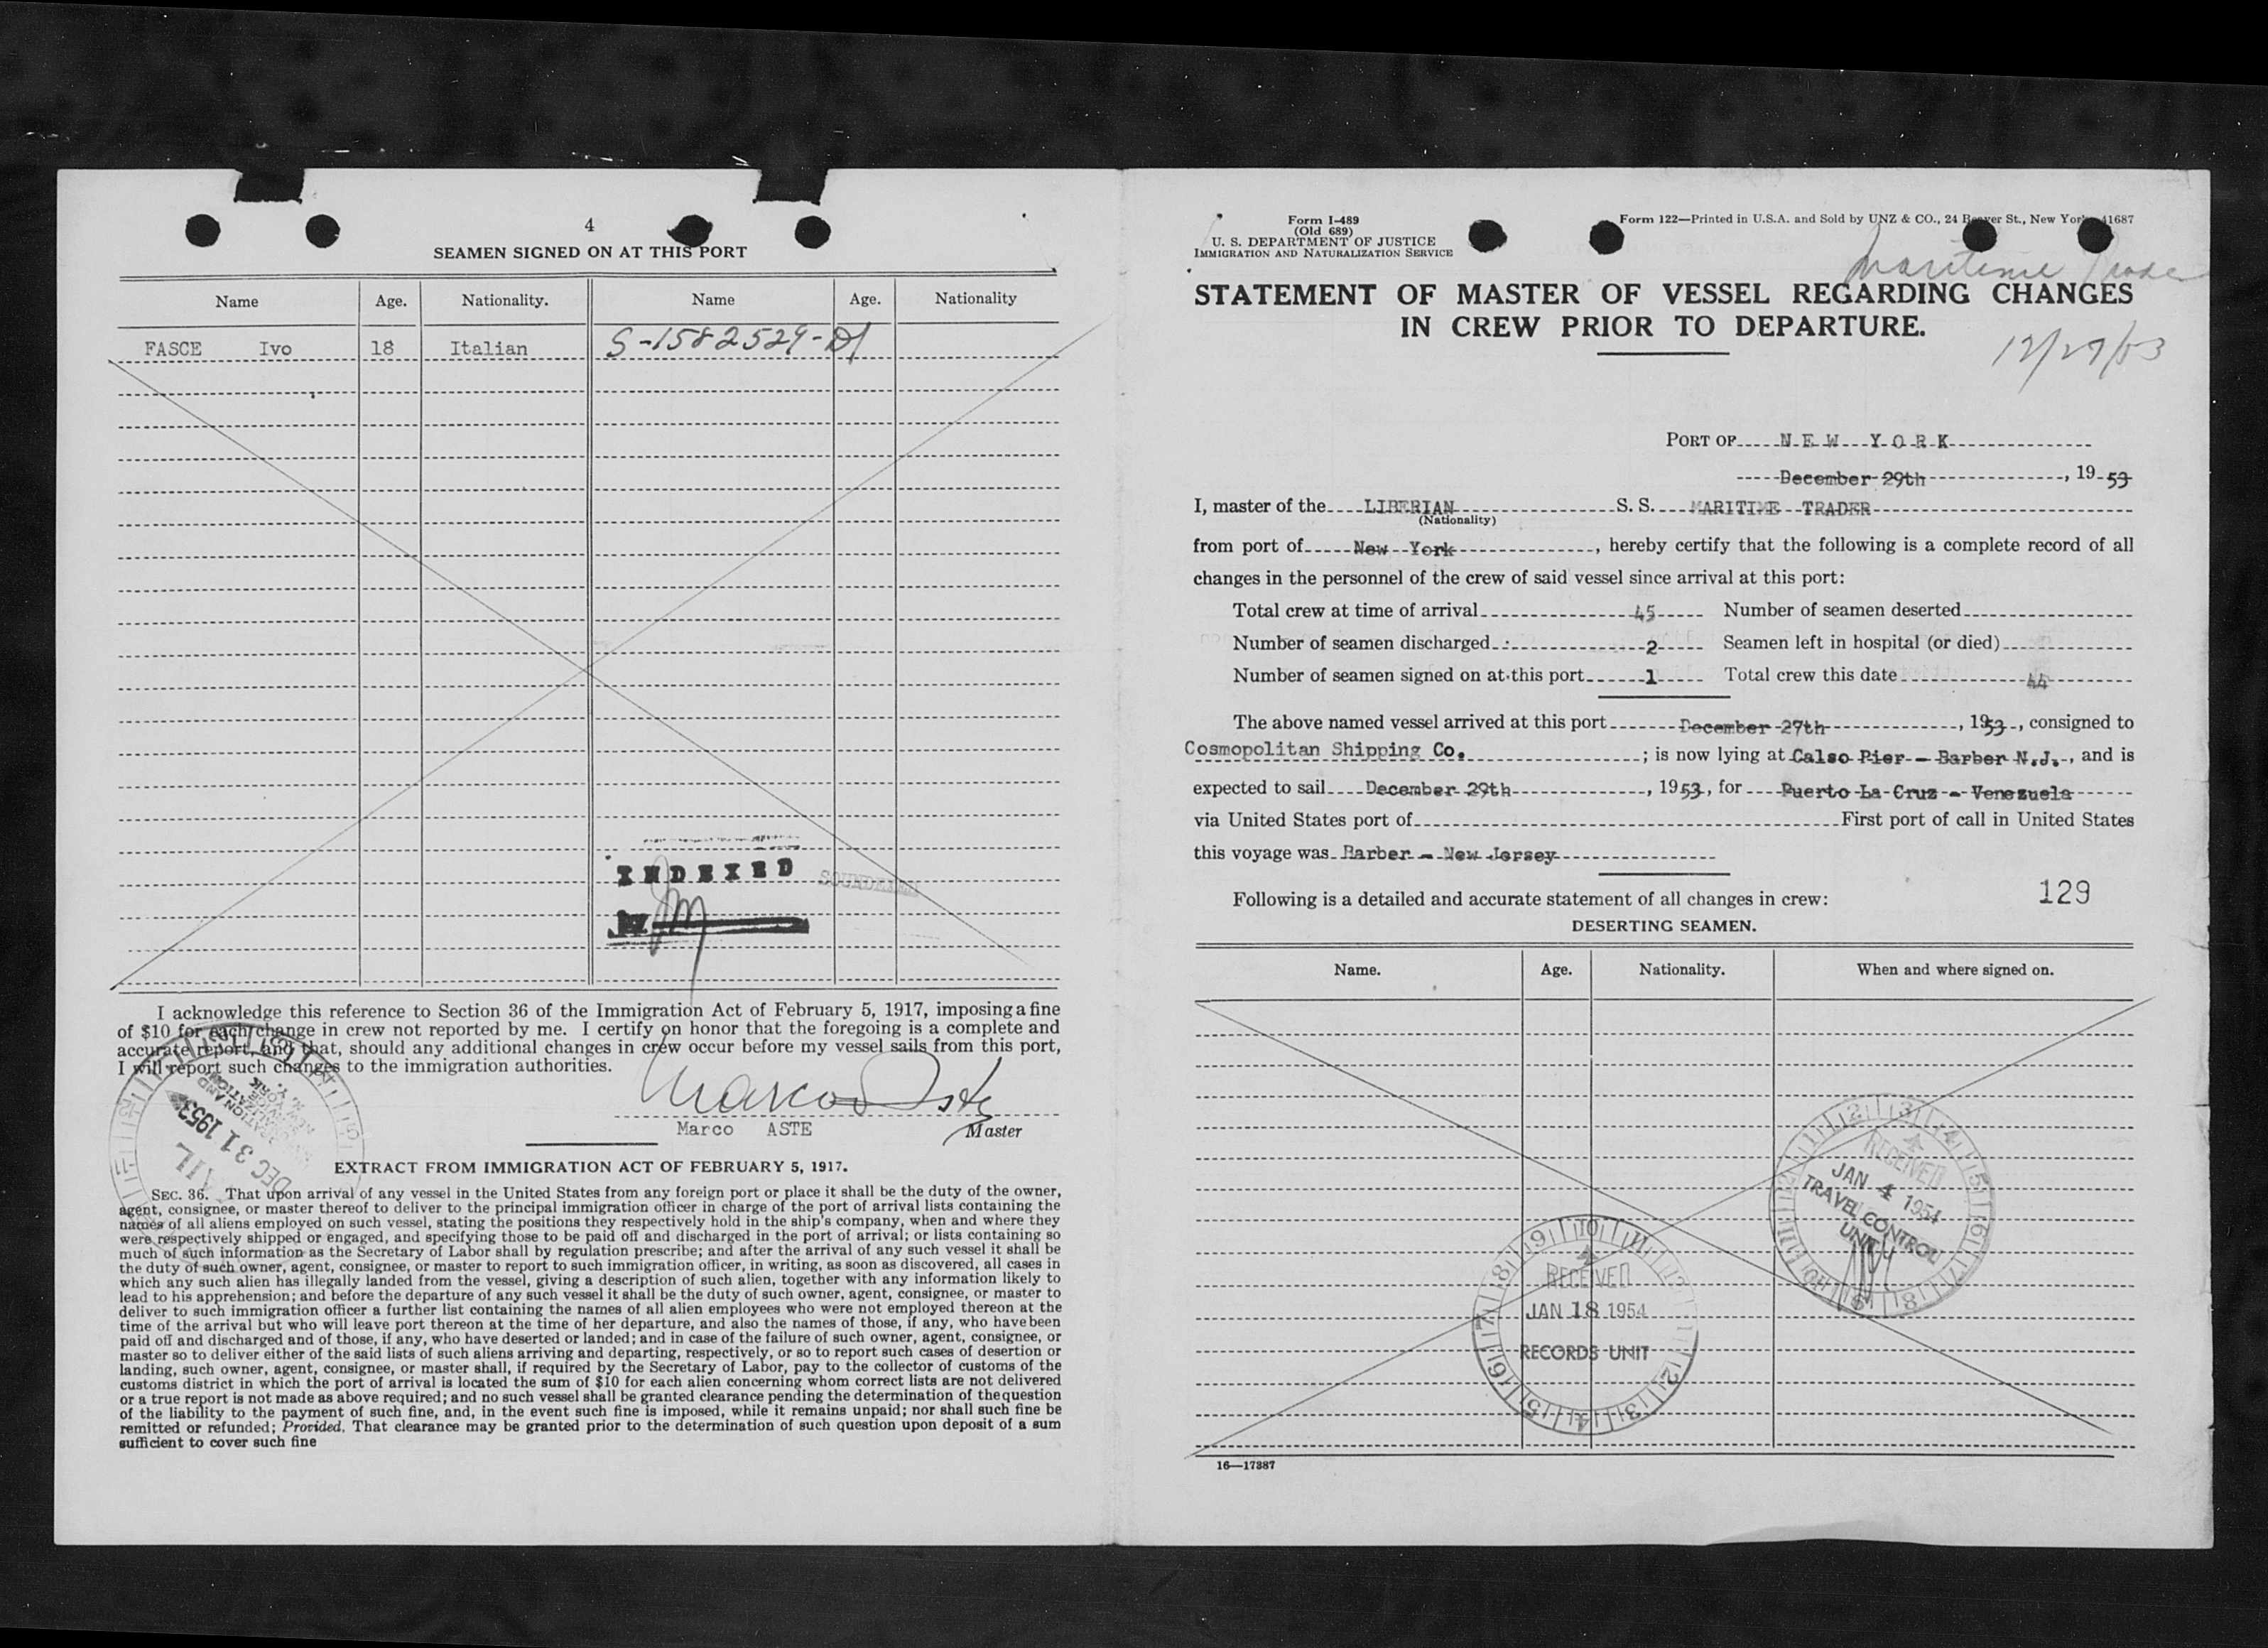 4
SEAMEN SIGNED ON AT THIS PORT
Name Age. Nationality. Name Age. Nationality
FASCE Ivo 18 Italian S-1582529-D1
INDEXED
SOUNDEXED
I acknowledge this reference to Section 36 of the Immigration Act of February 5, 1917, imposing a fine
of $10 for each change in crew not reported by me. I certify on honor that the foregoing is a complete and
accurate report, and that, should any additional changes in crew occur before my vessel sails from this port,
I will report such changes to the immigration authorities.
Marco Aste
Marco ASTE Master
DEC 31 1953
EXTRACT FROM IMMIGRATION ACT OF FEBRUARY 5, 1917.
SEC. 36. That upon arrival of any vessel in the United States from any foreign port or place it shall be the duty of the owner,
agent, consignee, or master thereof to deliver to the principal immigration officer in charge of the port of arrival lists containing the
names of all aliens employed on such vessel, stating the positions they respectively hold in the ship's company, when and where they
were respectively shipped or engaged, and specifying those to be paid off and discharged in the port of arrival; or lists containing so
much of such information as the Secretary of Labor shall by regulation prescribe; and after the arrival of any such vessel it shall be
the duty of such owner, agent, consignee, or master to report to such immigration officer, in writing, as soon as discovered, all cases in
which any such alien has illegally landed from the vessel, giving a description of such alien, together with any information likely to
lead to his apprehension; and before the departure of any such vessel it shall be the duty of such owner, agent, consignee, or master to
deliver to such immigration officer a further list containing the names of all alien employees who were not employed thereon at the
time of the arrival but who will leave port thereon at the time of her departure, and also the names of those, if any, who have been
paid off and discharged and of those, if any, who have deserted or landed; and in case of the failure of such owner, agent, consignee, or
master so to deliver either of the said lists of such aliens arriving and departing, respectively, or so to report such cases of desertion or
landing, such owner, agent, consignee, or master shall, if required by the Secretary of Labor, pay to the collector of customs of the
customs district in which the port of arrival is located the sum of $10 for each alien concerning whom correct lists are not delivered
or a true report is not made as above required; and no such vessel shall be granted clearance pending the determination of the question
of the liability to the payment of such fine, and, in the event such fine is imposed, while it remains unpaid; nor shall such fine be
remitted or refunded; Provided, That clearance may be granted prior to the determination of such question upon deposit of a sum
sufficient to cover such fine
Form I-489
(Old 689)
U. S. DEPARTMENT OF JUSTICE
IMMIGRATION AND NATURALIZATION SERVICE
Form 122—Printed in U.S.A. and Sold by UNZ & CO., 24 Beaver St., New York 41687
Maritime Trader
STATEMENT OF MASTER OF VESSEL REGARDING CHANGES
IN CREW PRIOR TO DEPARTURE.
12/29/53
PORT OF NEW YORK
December 29th, 1953
I, master of the LIBERIAN S. S. MARITIME TRADER
(Nationality)
from port of New York, hereby certify that the following is a complete record of all
changes in the personnel of the crew of said vessel since arrival at this port:
Total crew at time of arrival 45 Number of seamen deserted
Number of seamen discharged 2 Seamen left in hospital (or died)
Number of seamen signed on at this port 1 Total crew this date 44
The above named vessel arrived at this port December 27th, 1953, consigned to
Cosmopolitan Shipping Co.; is now lying at Calso Pier - Barber N.J., and is
expected to sail December 29th, 1953, for Puerto La Cruz - Venezuela
via United States port of First port of call in United States
this voyage was Barber - New Jersey
Following is a detailed and accurate statement of all changes in crew: 129
DESERTING SEAMEN.
Name. Age. Nationality. When and where signed on.
RECEIVED
JAN 4 1954
TRAVEL CONTROL
UNIT
RECEIVED
JAN 18 1954
RECORDS UNIT
16—17387